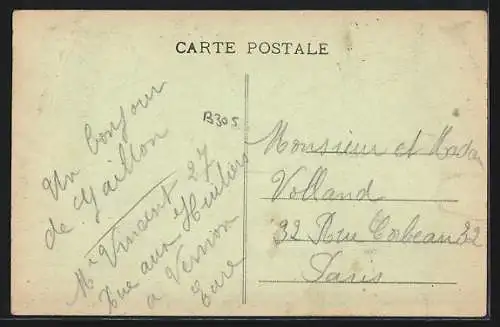 CARTE POSTALE
B305
Un bonjour
de Gaillon
Mr Vincent 27
Rue aux Huiliers
a Vernon
Eure
Monsieur et Madam
Volland
32 Rue Corbeau 32
Paris